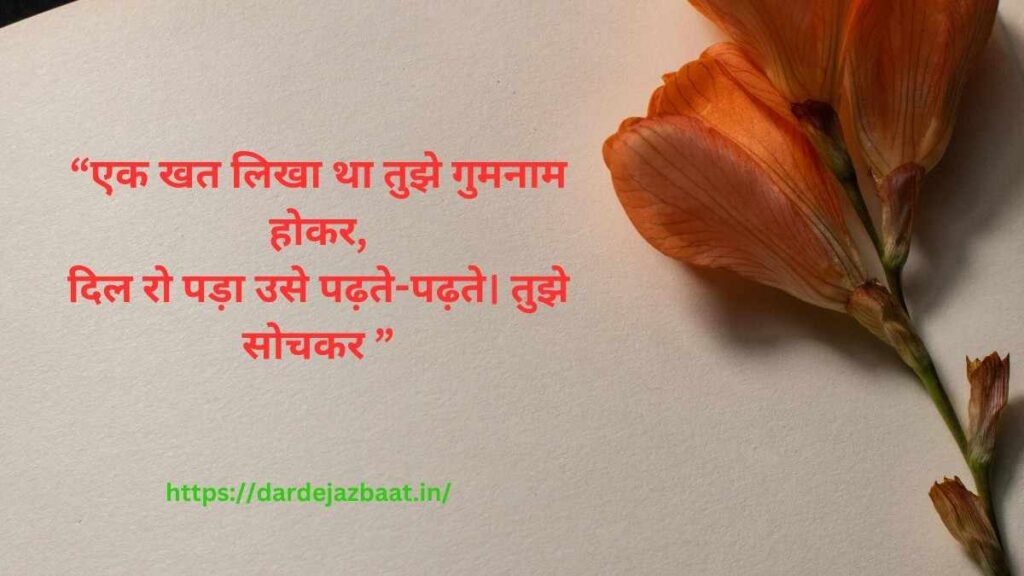 “एक खत लिखा था तुझे गुमनाम
होकर,
दिल रो पड़ा उसे पढ़ते-पढ़ते। तुझे
सोचकर ”
https://dardejazbaat.in/